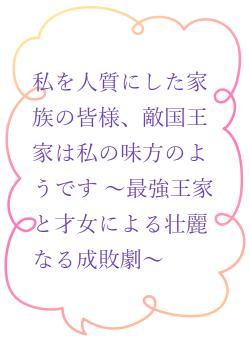 私を人質にした家
族の皆様、敵国王
家は私の味方のよ
うです ～最強王家
と才女による壮麗
なる成敗劇～